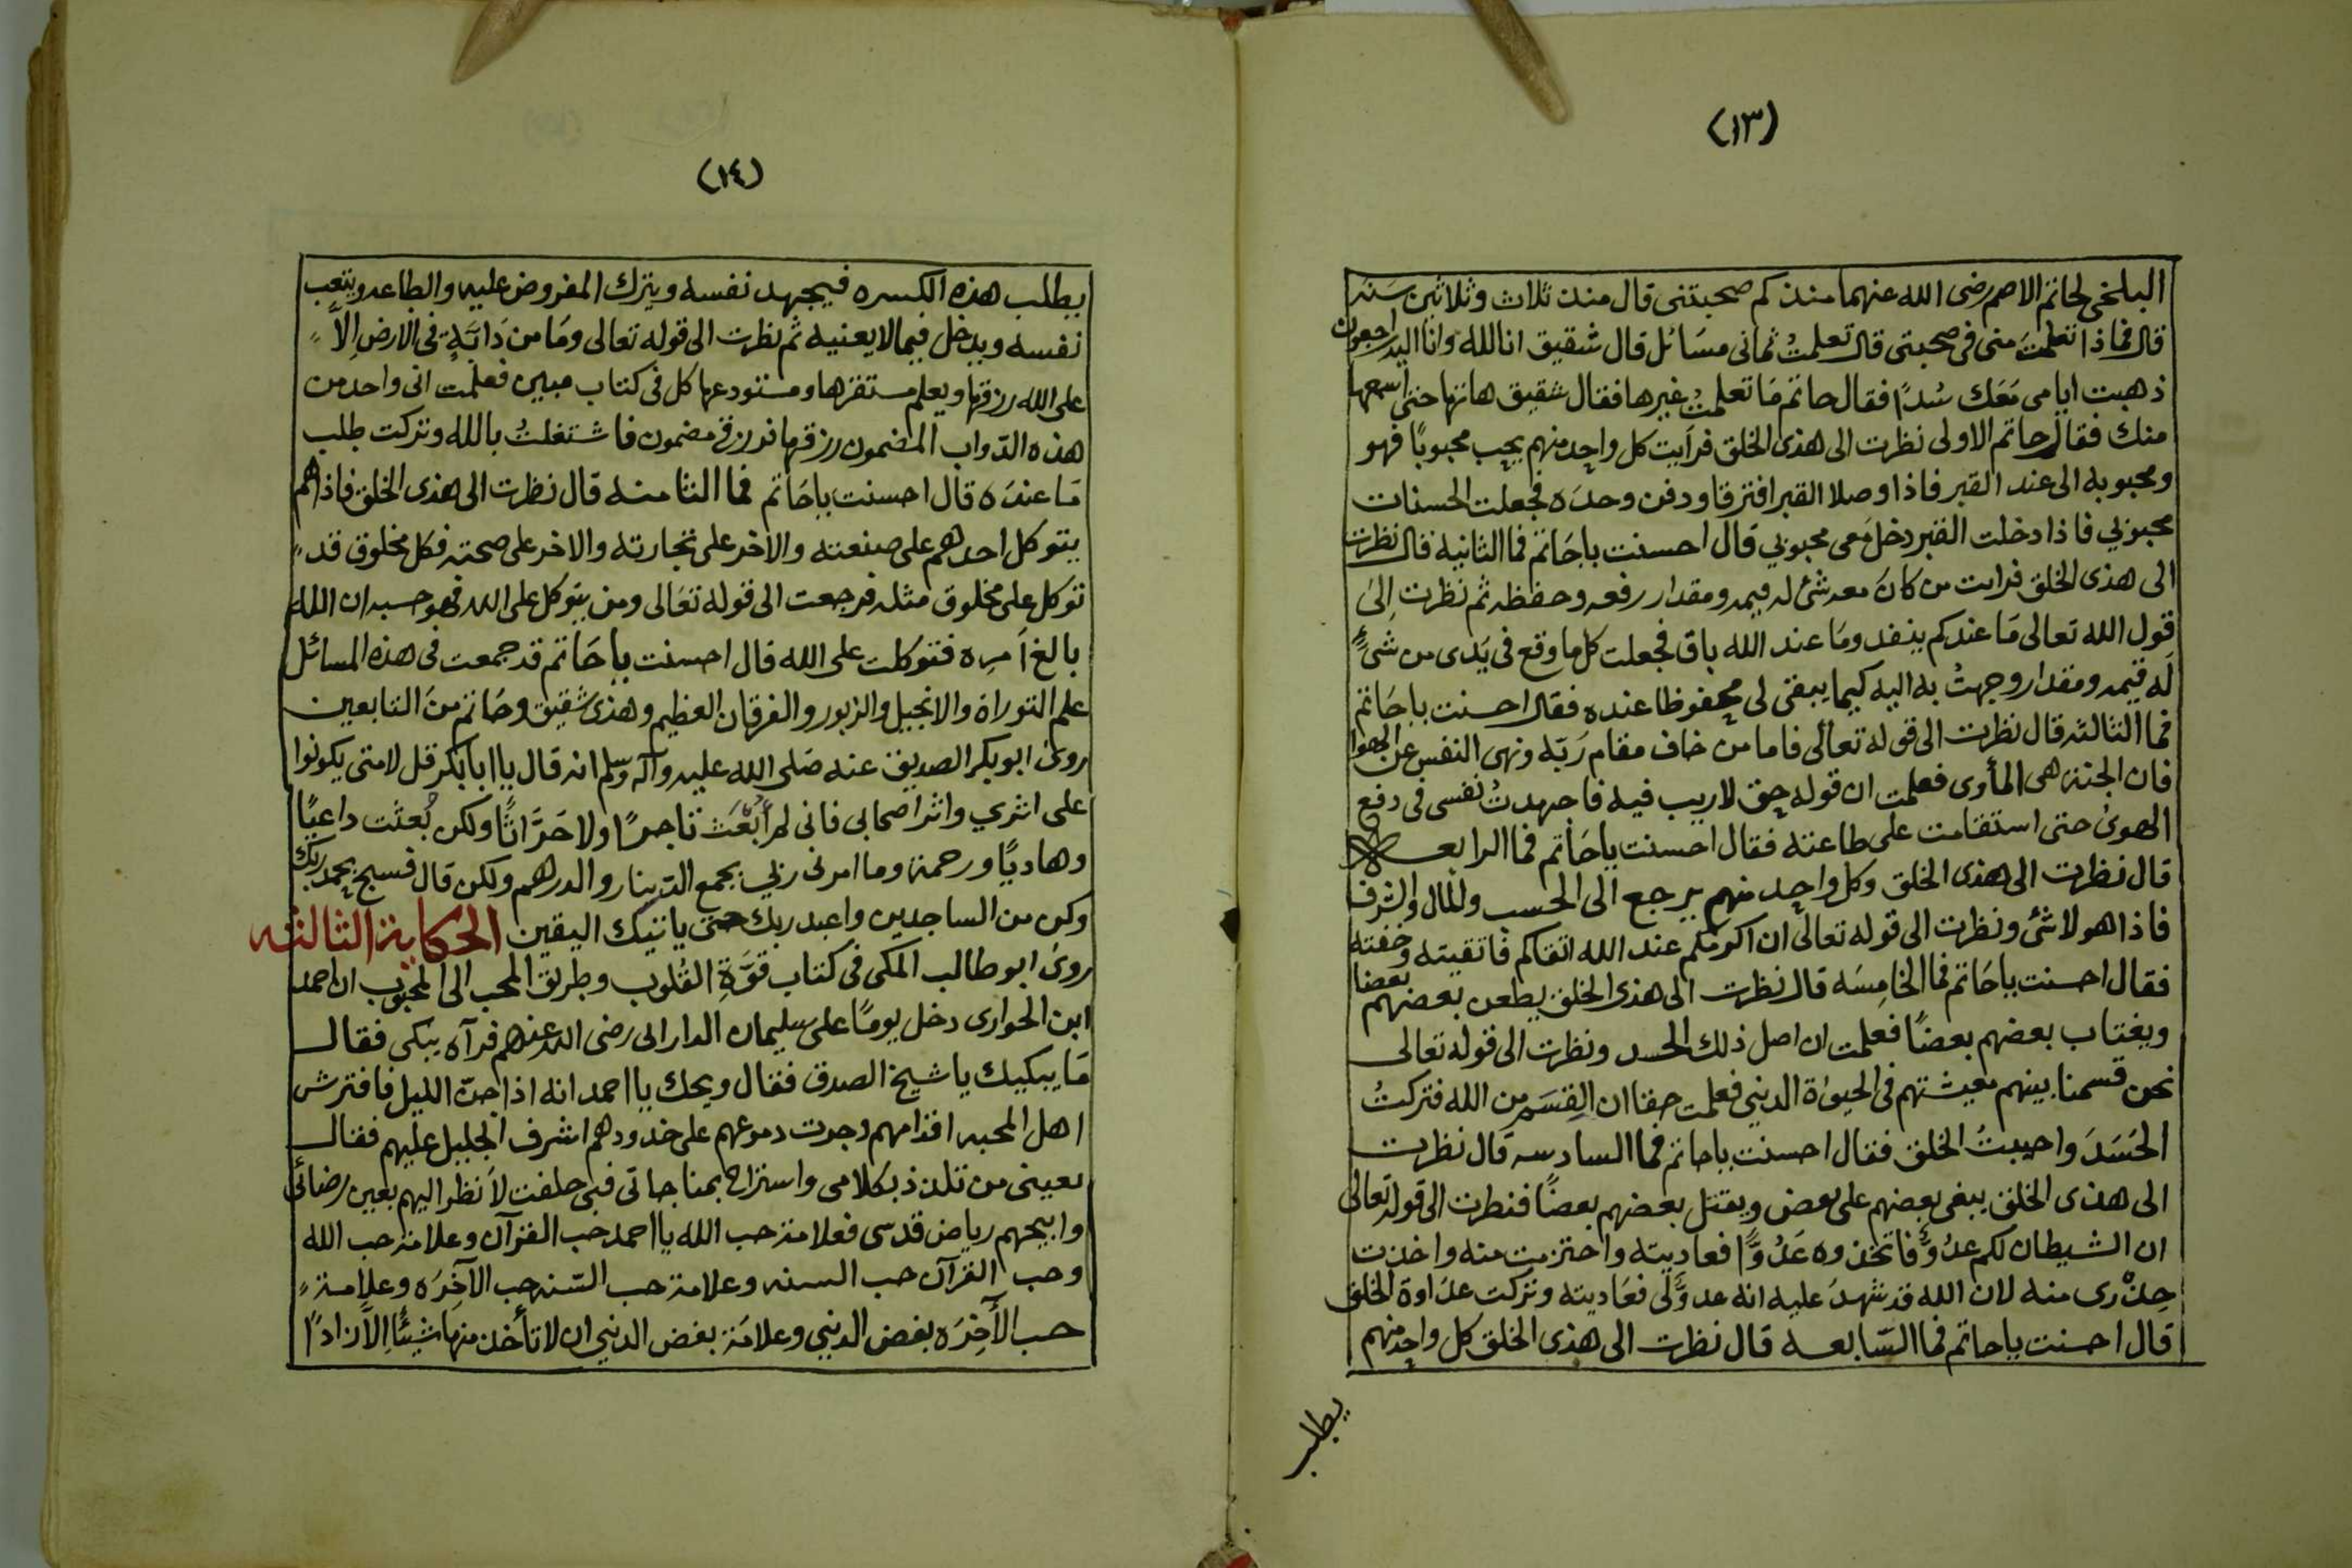 (١٣)
البلخي لحاتم الاصم رضى الله عنهما منذ كم صحبتنى قال منذ ثلاث وثلاثين سَنه
قال فماذا تعلمتَ منى فى صحبتى قال تعلمتُ ثمانى مسَائل قال شقيق انا لله وانا اليه راجعون
ذهبت ايامى مَعَك سُدًا فقال حاتم مَا تعلمتُ غيرها فقال شقيق هاتها حتى اسمعها
منك فقال حاتم الاولى نظرت الى هذى الخلق فرأيت كل واحد منهم يحب محبوبًا فهو
ومحبوبه الى عند القبر فاذا وصلا القبر افترقا ودفن وحدَه فجعلت الحسنات
محبوبي فاذا دخلت القبر دخل مَعى محبوبي قال احسنت ياحَاتم فما الثانيه قال نظرت
الى هذى الخلق فرايت من كانَ معه شئ له قيمه ومقدار رفعه وحفظه ثم نظرت إلىَ
قول الله تعالى مَا عندكم ينفد ومَا عند الله باق فجعلت كل ما وقع فى يَدى من شئٍ
لَه قيمه ومقدار وجهتُ به اليه كيما يبقى لى محفوظا عنده فقال احسنت ياحَاتم
فما الثالثه قال نظرت الى قوله تعالى فاما من خاف مقام رَبّه ونهى النفس عن الهوا
فان الجنة هى المأوى فعلمت ان قوله حق لاريب فيه فاجهدتُ نفسى فى دفع
الهوىٰ حتى استقامت على طاعته فقال احسنت ياحَاتم فما الرابعه
قال نظرت الى هذى الخلق وكل واحد منهم يرجع الى الحسب والمال والشرف
فاذا هو لاشئ ونظرت الى قوله تعالى ان اكرمكم عند الله اتقاكم فاتقيته وخفته
فقال احسنت ياحَاتم فما الخامِسَه قال نظرت الى هذى الخلق يطعن بعضهم بعضا
ويغتاب بعضهم بعضًا فعلمت ان اصل ذلك الحسد ونظرت الى قوله تعالى
نحن قسمنا بينهم معيشتهم فى الحيوٰة الدنيى فعلمت حقا ان القِسَم من الله فتركتُ
الحَسَدَ واحببتُ الخلق فقال احسنت ياحاتم فما السادسه قال نظرت
الى هذى الخلق يبغى بعضهم على بعض ويقتل بعضهم بعضًا فنظرت الى قوله تعالى
ان الشيطان لكم عدُوٌّ فاتخذوه عَدُوًّا فعاديته واحترمت منه واخذت
حِذْرى منه لان الله قد شهدَ عليه انه عدوٌّ لى فعَاديته وتركت عدَاوة الخلق
قال احسنت ياحاتم فما السّابعه قال نظرت الى هذى الخلق كل واحد منهم
يطلب
(١٤)
يطلب هذه الكسره فيجهد نفسه ويترك المفروض عليه والطاعه ويتعب
نفسه ويدخل فيمالا يعنيه ثم نظرت الى قوله تعالى ومَا من دَابّةٍ فى الارض إلاَّ
على الله رزقها ويعلم مستقرها ومستودعها كل فى كتاب مبين فعلمت انى واحد من
هذه الدّواب المضمون رزقها فرزقى مضمون فاشتغلتُ بالله وتركت طلب
مَا عندَه قال احسنت ياحَاتم فما الثامنه قال نظرت الى هذى الخلق فاذا هم
يتوكل احدهم على صنعته والآخر على تجارته والاخر على صحته فكل مخلوق قد
توكل على مخلوق مثله فرجعت الى قوله تعَالى ومن يتوكل على الله فهو حسبه ان الله
بالغ أمرِه فتوكلت على الله قال احسنت ياحَاتم قد جمعت فى هذه المسائل
علم التوراة والانجيل والزبور والفرقان العظيم وهذى شقيق وحَاتم منَ التابعين
روىٰ ابوبكر الصديق عنه صَلى الله عليه وآله وسلم انه قال يا ابابكر قل لامتى يكونوا
على اثري واثر اصحابى فانى لم أبْعَث تاجرًا ولا حَرَّاثًا ولكن بُعثت داعيًا
وهاديًا ورحمة وما امرنى ربي بجمع الدينار والدرهم ولكن قال فسبح بحمد ربك
وكن من الساجدين واعبد ربك حتى ياتيك اليقين الحكاية الثالثه
روىٰ ابوطالب المكى فى كتاب قوَّةِ القلوب وطريق المحب الى المحبوب ان احمد
ابن الحوارى دخل يومًا على سليمان الدارانى رضى الله عنهم فرآه يبكى فقال
مَا يبكيك ياشيخ الصدق فقال ويحك يا احمد انه اذا جنّ الليل فافترش
اهل المحبه اقدامهم وجرت دموعهم على خدودهم اشرف الجليل عليهم فقال
بعينى من تلذذ بكلامى واستراح بمناجاتى فبى حلفت لأنظر اليهم بعين رضائى
وابيحهم رياض قدسى فعلامة حب الله يا احمد حب القرآن وعلامة حب الله
وحب القرآن حب السنه وعلامة حب السّنه حب الآخِرَه وعلامة
حب الآخِرَه بغض الدنيي وعلامَة بغض الدنيي ان لا تأخذ منهَا شيئًا إلاَّ زادًا